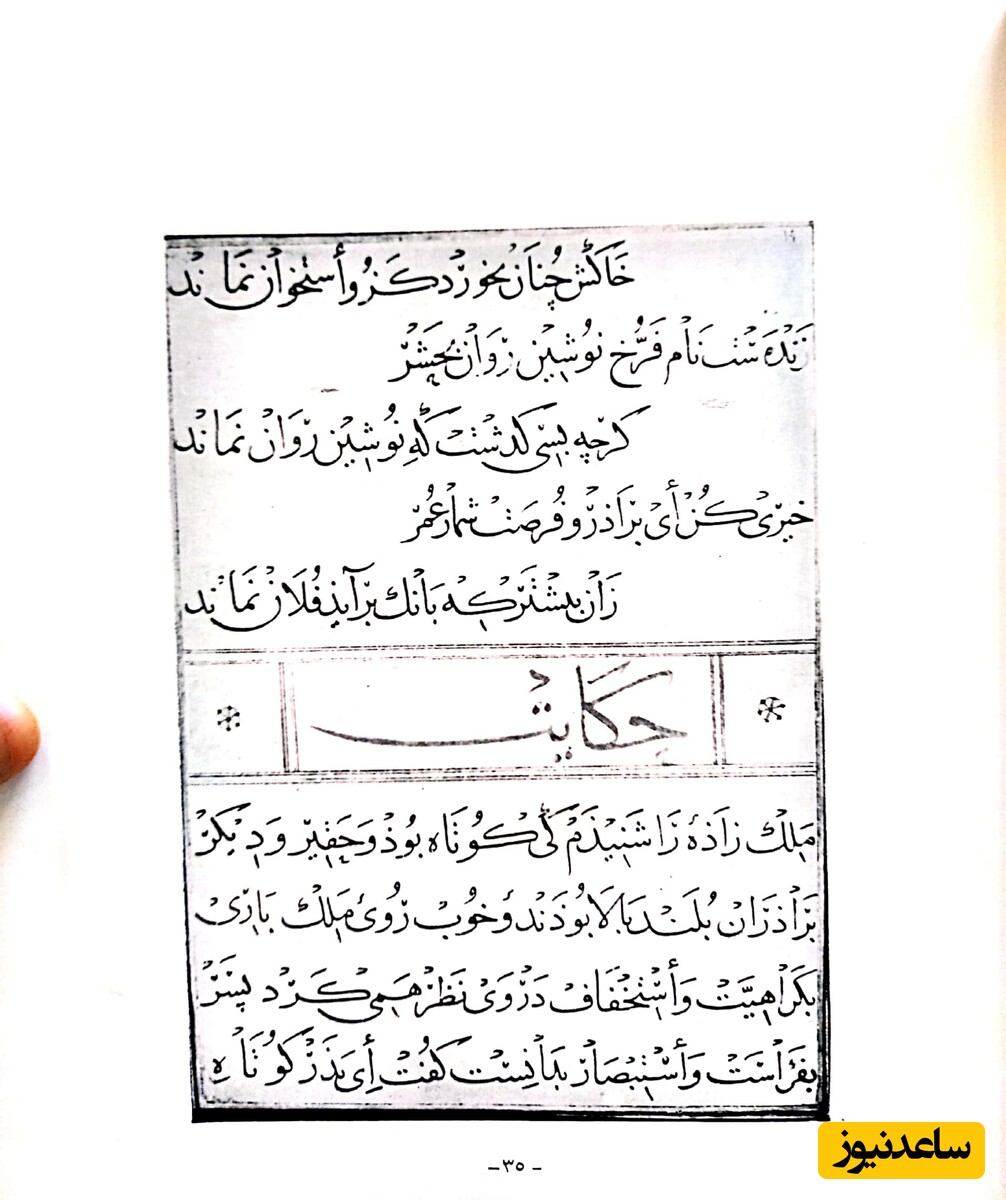 ۱۹
خَاکَش چُنان بخورد کزو أستخوان نماند
زنده ست نام فرّخ نوشین روان بحشر
کرچه بسی کدشت که نوشین روان نماند
خیری کن أی براذر و فرصت شمار عُمر
زآن پیشتر که بانك برآیذ فُلان نماند
حکایت
ملك زاذهٔ را شنیذم کی کوتاه بوذ و حقیر و دیکر
براذران بُلند بالا بوذند و خوب رُوی ملك باری
بکراهیّت و أستخفاف در وی نظر همی کرد پسر
بفراست و أستبصار بدانست کفت أی بذر کوتاه
-۳۵-
ساعدنیوز